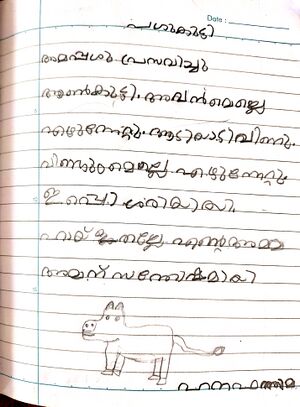 Date :
പശുകുട്ടി
അമ്മപശു പ്രസവിച്ചു
ആൺകുട്ടി. അവൻ മെല്ലെ
എഴുന്നേറ്റു. ആടിയാടി വീണു.
വീണ്ടും മെല്ലെ എഴുന്നേറ്റു
ഇപ്പൊ ശരിയായി
ഹായ് അമ്മ
അമ്മക്ക് സന്തോഷമായി